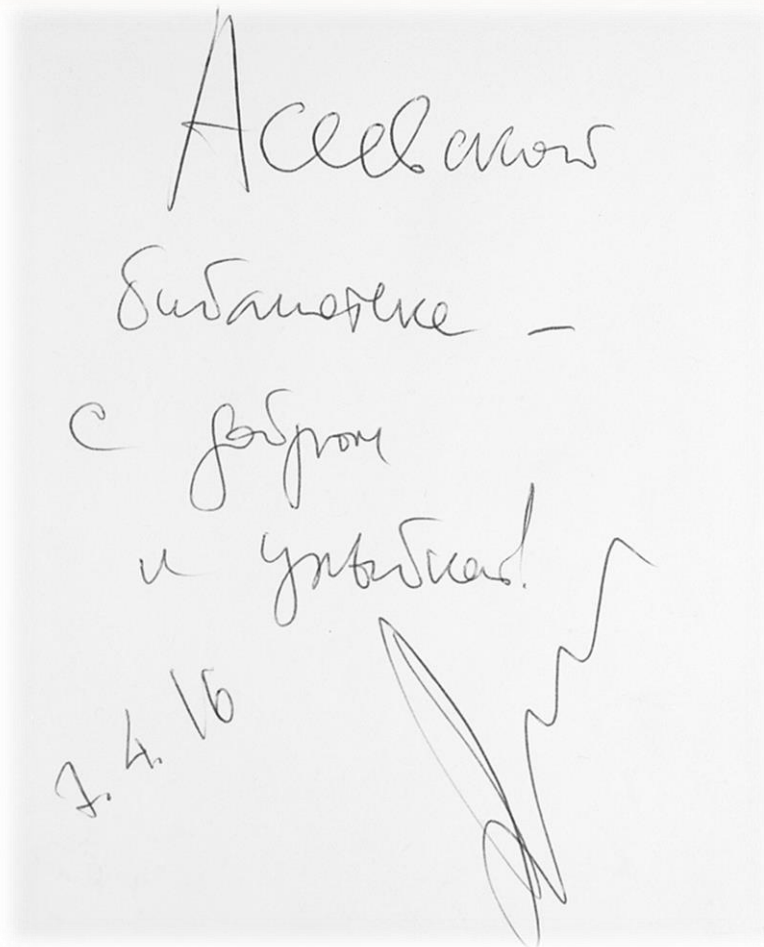 Асеевской
библиотеке –
с добром
и улыбкой!
7.4.16